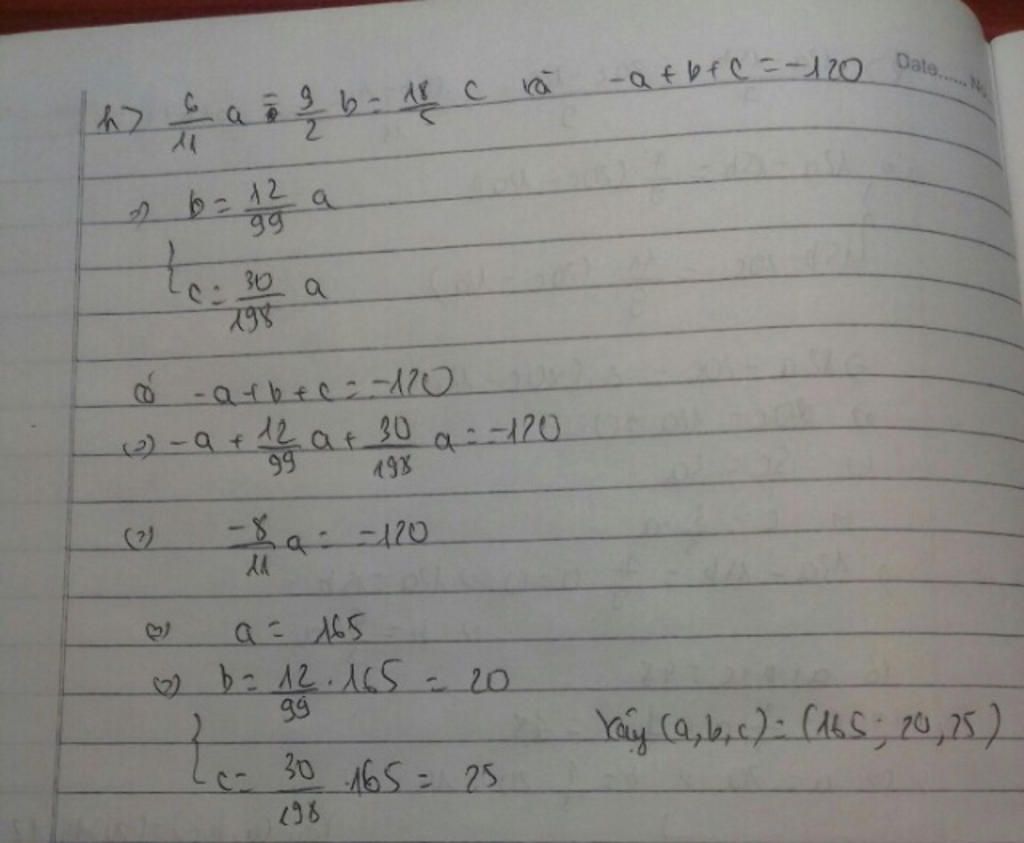 Date...... No
h> 6/11 a = 9/2 b = 18/5 c và -a + b + c = -120
=> b = 12/99 a
c = 30/198 a
có -a + b + c = -120
(=) -a + 12/99 a + 30/198 a = -120
(=) -8/11 a = -120
(=) a = 165
(=) b = 12/99 . 165 = 20
Vậy (a, b, c) = (165; 20, 25)
c = 30/198 . 165 = 25